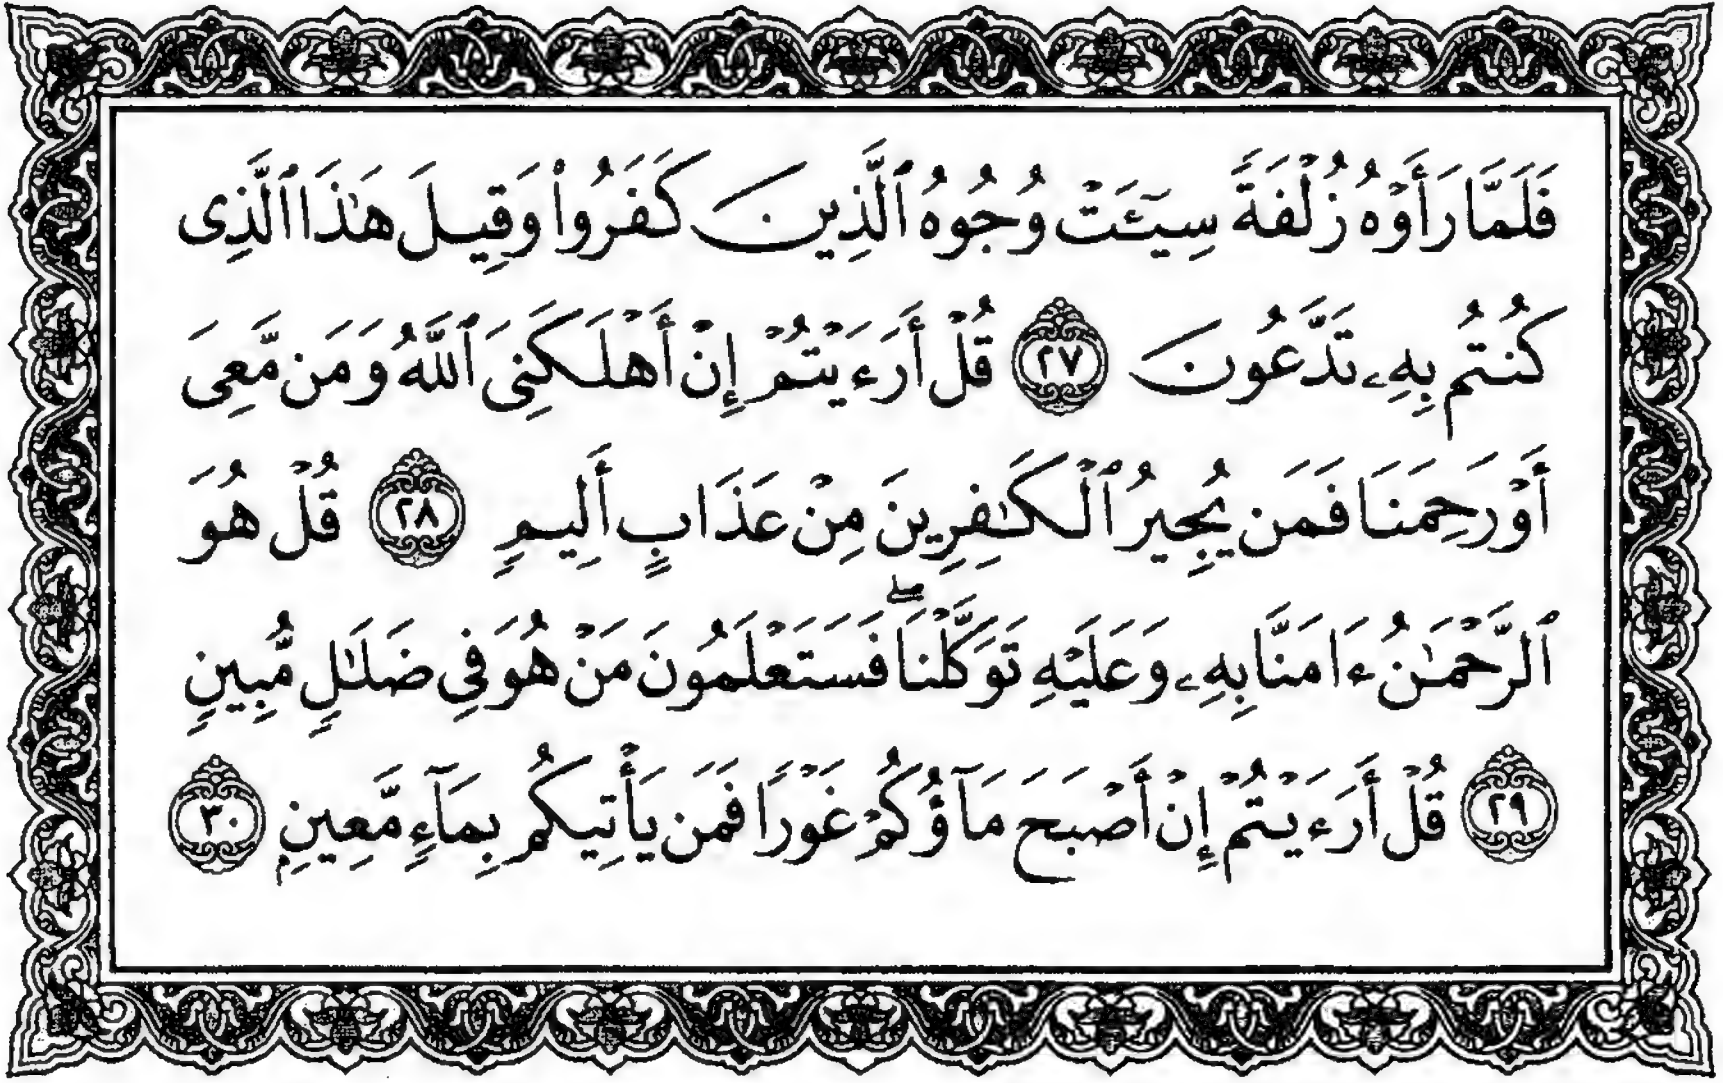 فَلَمَّا رَأَوْهُ زُلْفَةً سِيٓـَٔتْ وُجُوهُ ٱلَّذِينَ كَفَرُوا۟ وَقِيلَ هَٰذَا ٱلَّذِى
كُنتُم بِهِۦ تَدَّعُونَ ٢٧ قُلْ أَرَءَيْتُمْ إِنْ أَهْلَكَنِىَ ٱللَّهُ وَمَن مَّعِىَ
أَوْ رَحِمَنَا فَمَن يُجِيرُ ٱلْكَٰفِرِينَ مِنْ عَذَابٍ أَلِيمٍ ٢٨ قُلْ هُوَ
ٱلرَّحْمَٰنُ ءَامَنَّا بِهِۦ وَعَلَيْهِ تَوَكَّلْنَا ۖ فَسَتَعْلَمُونَ مَنْ هُوَ فِى ضَلَٰلٍ مُّبِينٍ
٢٩ قُلْ أَرَءَيْتُمْ إِنْ أَصْبَحَ مَآؤُكُمْ غَوْرًا فَمَن يَأْتِيكُم بِمَآءٍ مَّعِينٍۭ ٣٠